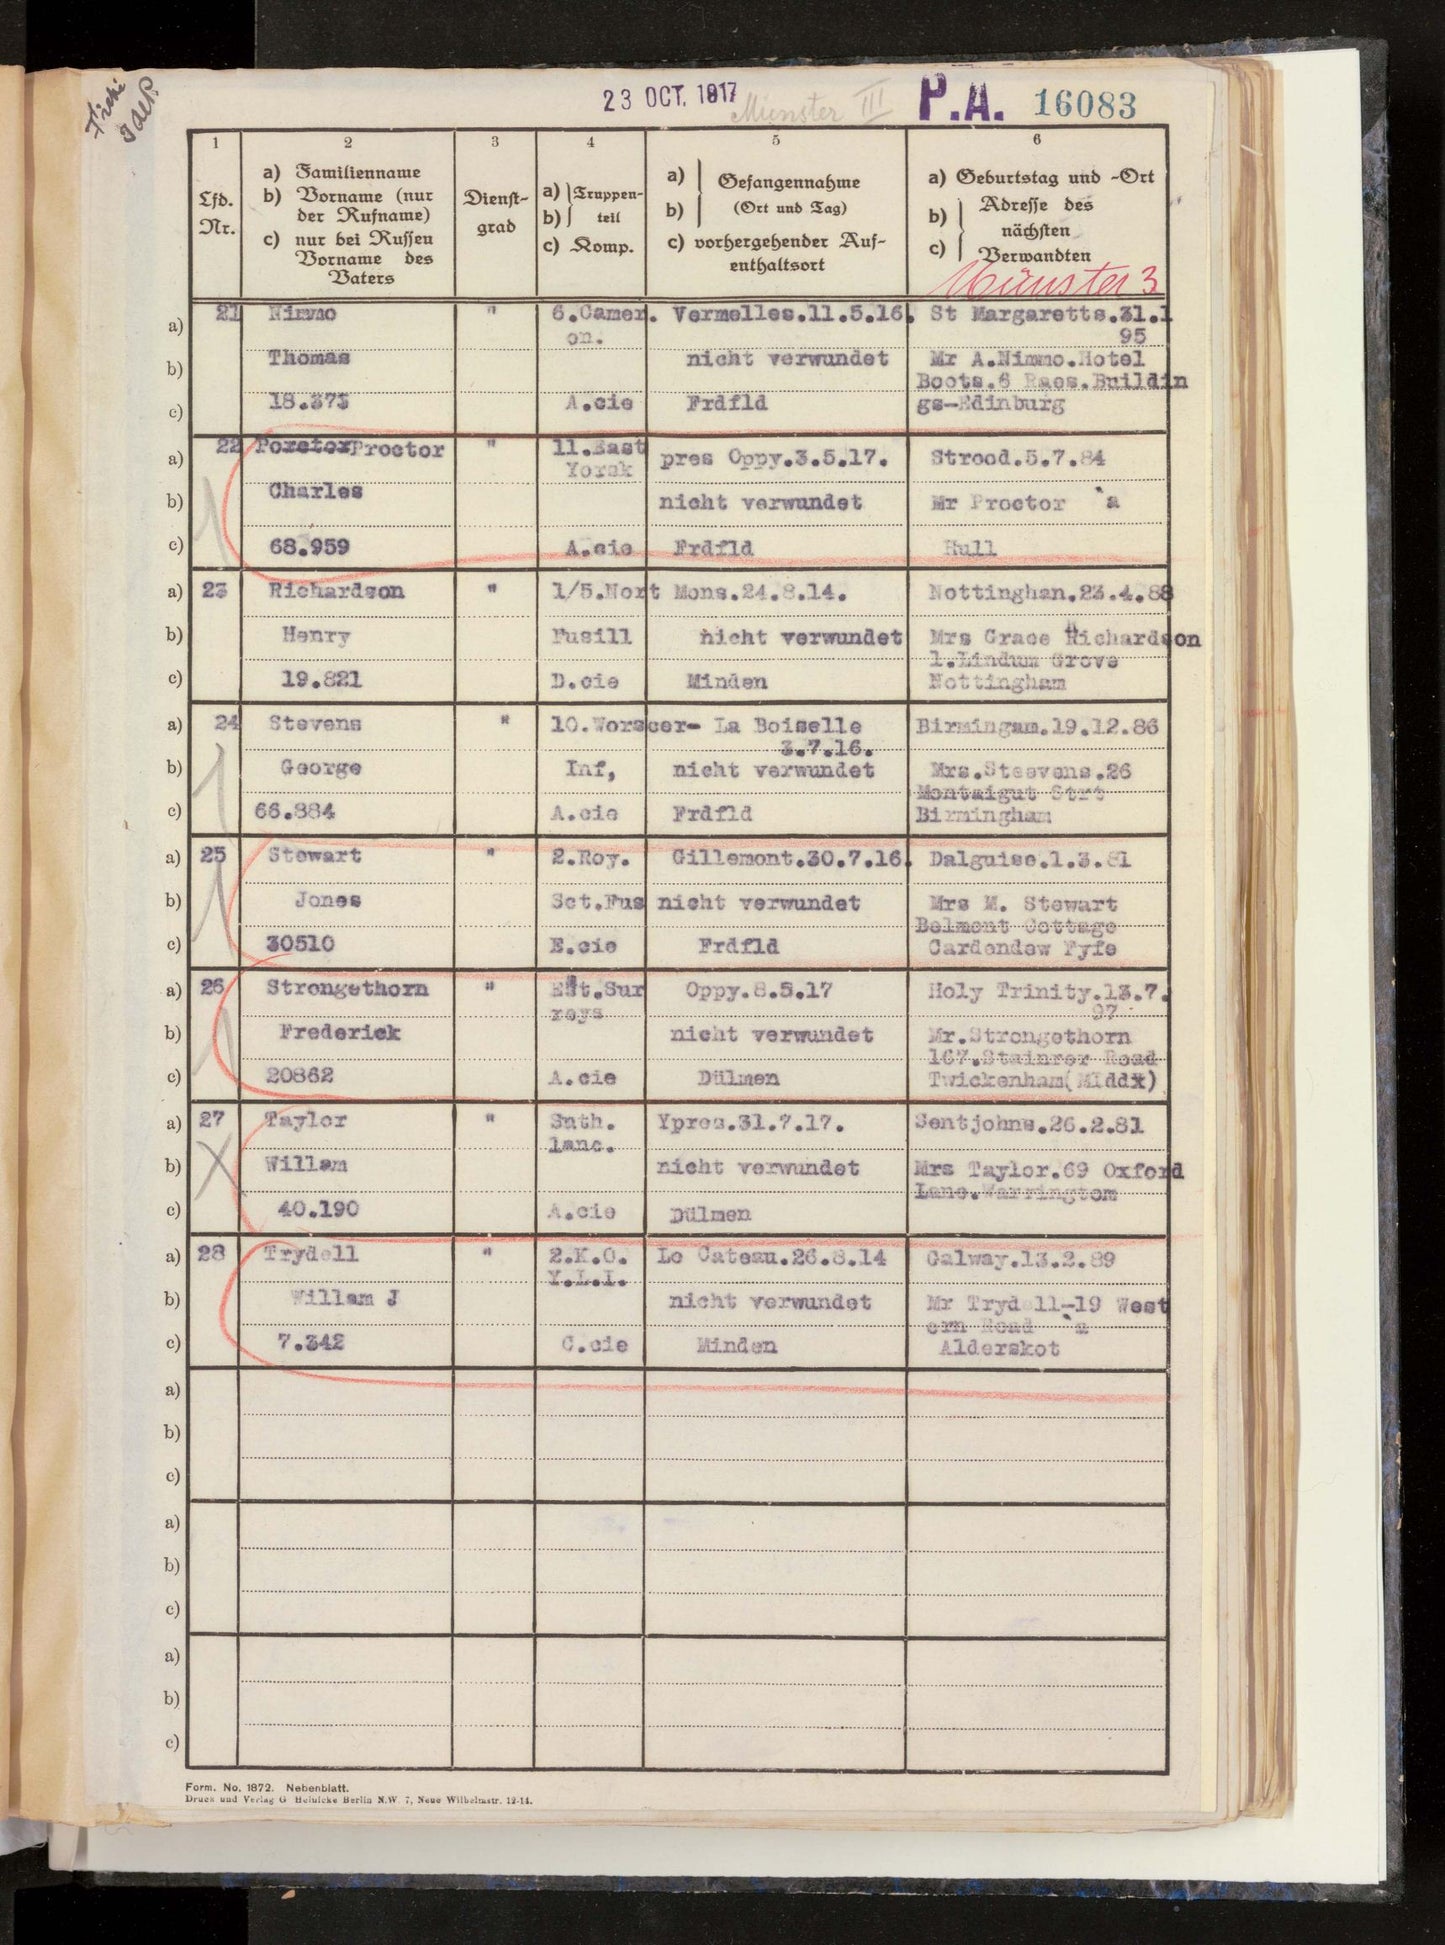 23 OCT. 1917
Münster III
P.A. 16083
1 2 3 4 5 6
Lfd. Nr.
a) Familienname
b) Vorname (nur
der Rufname)
c) nur bei Russen
Vorname des
Vaters
Dienst-
grad
a) Truppen-
b) teil
c) Komp.
a) Gefangennahme
b) (Ort und Tag)
c) vorhergehender Auf-
enthaltsort
a) Geburtstag und -Ort
b) Adresse des
nächsten
c) Verwandten
Münster 3
a) 21 Nimmo " 6.Camer. Vermelles.11.5.16. St Margaretts.31.1
on. 95
b) Thomas nicht verwundet Mr A.Nimmo.Hotel
Boots.6 Raes.Buildin
c) 18.373 A.cie Frdfld gs-Edinburg
a) 22 Poretor Proctor " 11.East pres Oppy.3.5.17. Strood.5.7.84
Yorsk
b) Charles nicht verwundet Mr Proctor `a
c) 68.959 A.cie Frdfld Hull
a) 23 Richardson " 1/5.Nort Mons.24.8.14. Nottinghan.23.4.88
b) Henry Fusill nicht verwundet Mrs Grace Richardson
1.Lindum Grove
c) 19.821 D.cie Minden Nottingham
a) 24 Stevens " 10.Worscer- La Boiselle Birmingam.19.12.86
3.7.16.
b) George Inf, nicht verwundet Mrs.Steevens.26
Montaigut Strt
c) 66.884 A.cie Frdfld Birmingham
a) 25 Stewart " 2.Roy. Gillemont.30.7.16. Dalguise.1.3.81
b) Jones Sct.Fus nicht verwundet Mrs M. Stewart
Belmont Cottage
c) 30510 E.cie Frdfld Cardendew Fyfe
a) 26 Strongethorn " Est.Sur Oppy.8.5.17 Holy Trinity.13.7.
reys 97
b) Frederick nicht verwundet Mr.Strongethorn
167.Stainrer Road
c) 20862 A.cie Dülmen Twickenham(MIddx)
a) 27 Taylor " Snth. Ypres.31.7.17. Sentjohns.26.2.81
lanc.
b) Willam nicht verwundet Mrs Taylor.69 Oxford
Lane.Warringtom
c) 40.190 A.cie Dülmen
a) 28 Trydell " 2.K.O. Le Cateau.26.8.14 Galway.13.2.89
Y.L.I.
b) Willam J nicht verwundet Mr Trydell-19 West
ern Road `a
c) 7.342 C.cie Minden Alderskot
a)
b)
c)
a)
b)
c)
a)
b)
c)
Form. No. 1872. Nebenblatt.
Druck und Verlag G Heinicke Berlin N.W 7, Neue Wilhelmstr. 12-14.